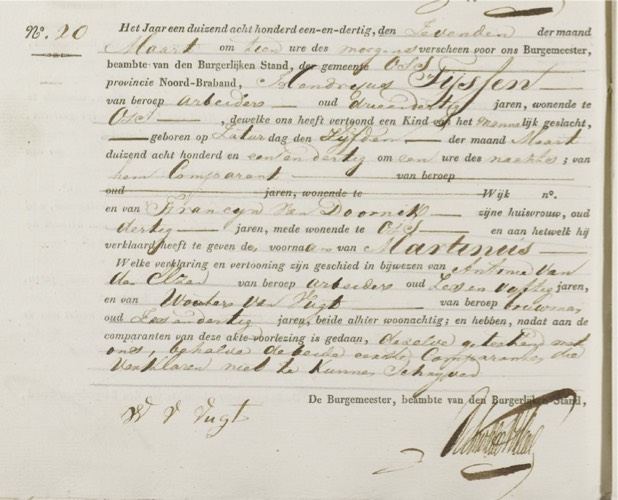 Nº. 20 Het Jaar een duizend acht honderd een-en-dertig, den Zevenden der maand
Maart om tien ure des morgens verscheen voor ons Burgemeester,
beambte van den Burgerlijken Stand, der gemeente Oss
provincie Noord-Braband, Hendricus Tijssen
van beroep arbeiders oud drieendertig jaren, wonende te
Oss, dewelke ons heeft vertoond een Kind van het mannelijk geslacht,
geboren op Zaturdag den Vijfden der maand Maart
duizend acht honderd en eenendertig om een ure des nachts; van
hem Comparant van beroep
oud jaren, wonende te Wijk nº.
en van Francyn Van Doornik zijne huisvrouw, oud
dertig jaren, mede wonende te Oss en aan hetwelk hij
verklaard heeft te geven de voornaam van Martinus
Welke verklaring en vertooning zijn geschied in bijwezen van Antonie Van
den Elzen van beroep arbeiders oud zes en vijftig jaren,
en van Wouterus Van Vugt van beroep bouwman
oud zes en dertig jaren, beide alhier woonachtig; en hebben, nadat aan de
comparanten van deze akte voorlezing is gedaan, dezelve geteekend met
ons, behalve de beide eerste Comparanten die
verklaren niet te kunnen Schryven
De Burgemeester, beambte van den Burgerlijken Stand,
W V Vugt